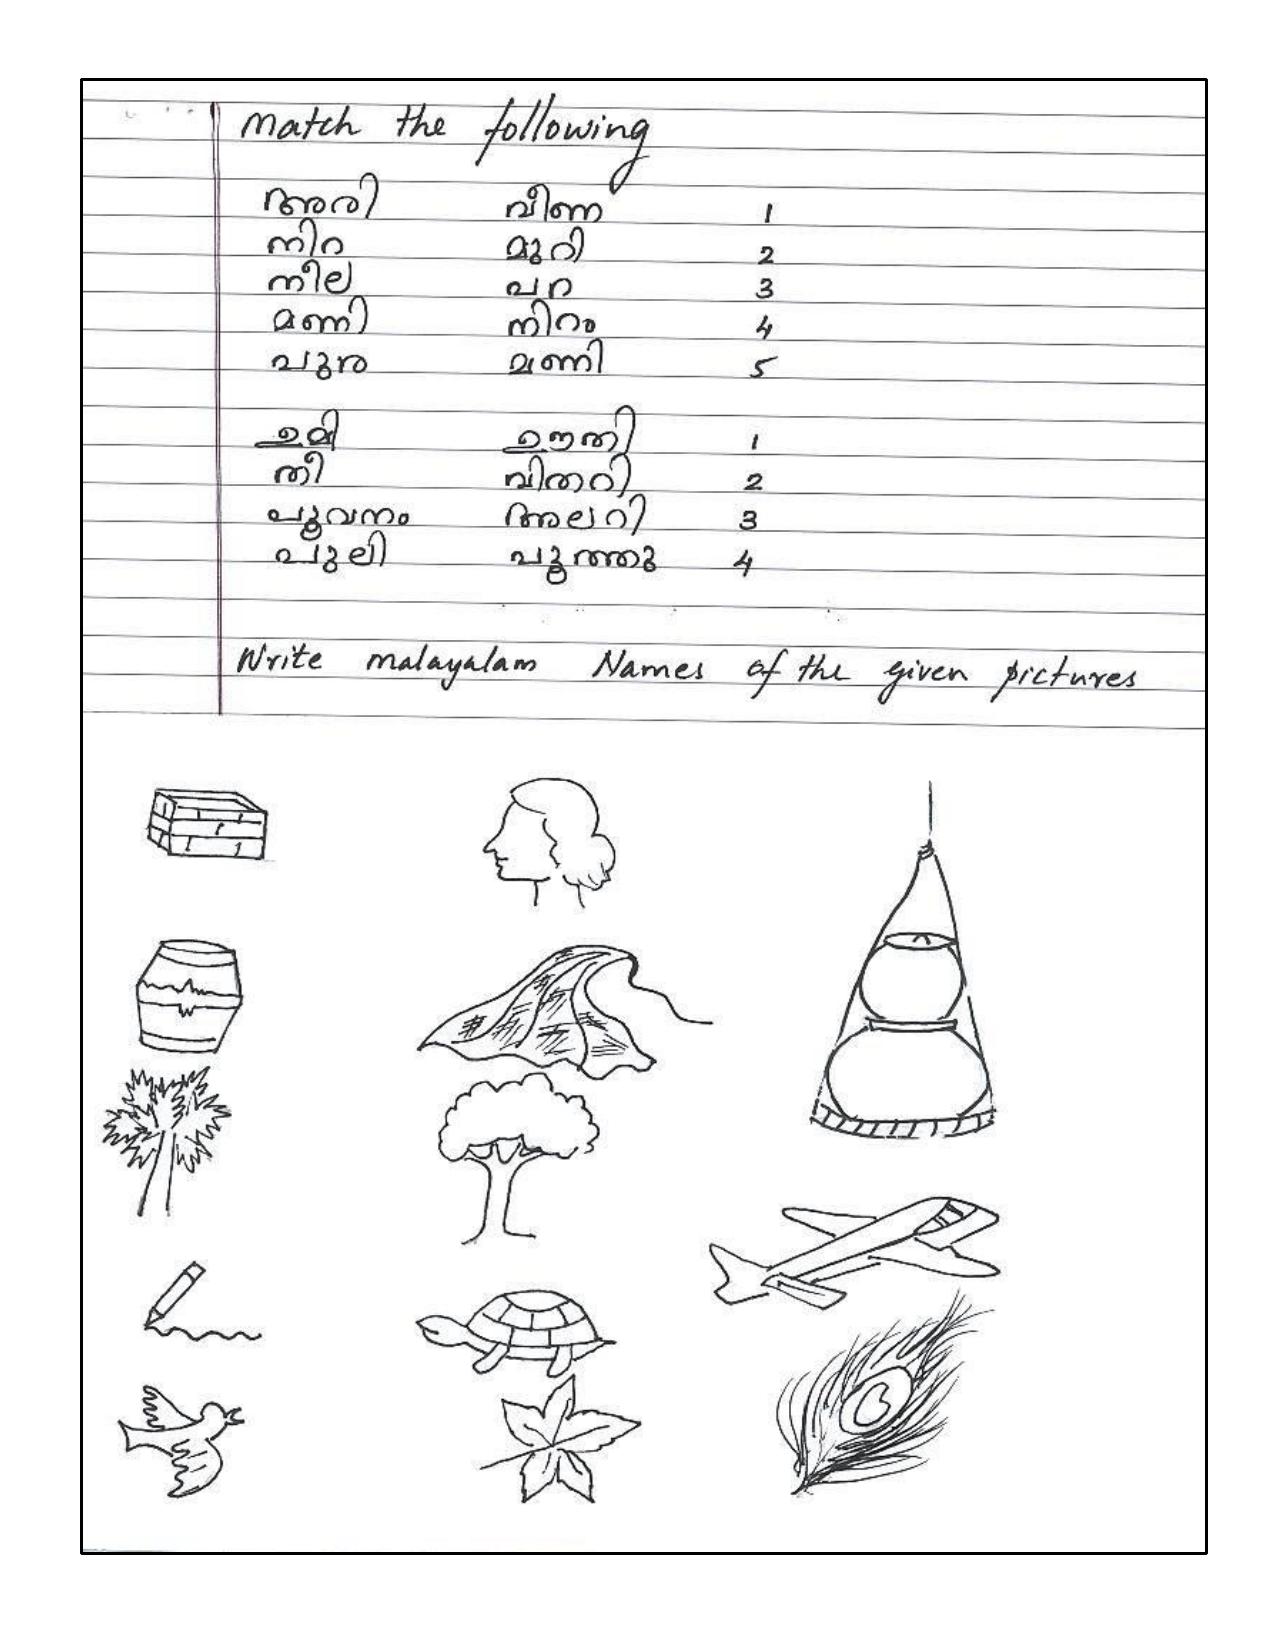 Match the following
അരി വീണ 1
നിറ മുറി 2
നീല പറ 3
മണി നിറം 4
പുര മണി 5
ഉമി ഊതി 1
തീ വിതറി 2
പൂവനം അലറി 3
പുലി പൂത്തു 4
Write malayalam Names of the given pictures